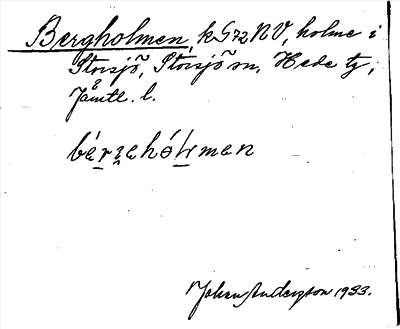 Bergholmen, k G72 NV, holme i
Storsjö, Storsjö sn, Hede tg,
Jämtl. l.
bérgehólmen
Johan Anderzon 1933.